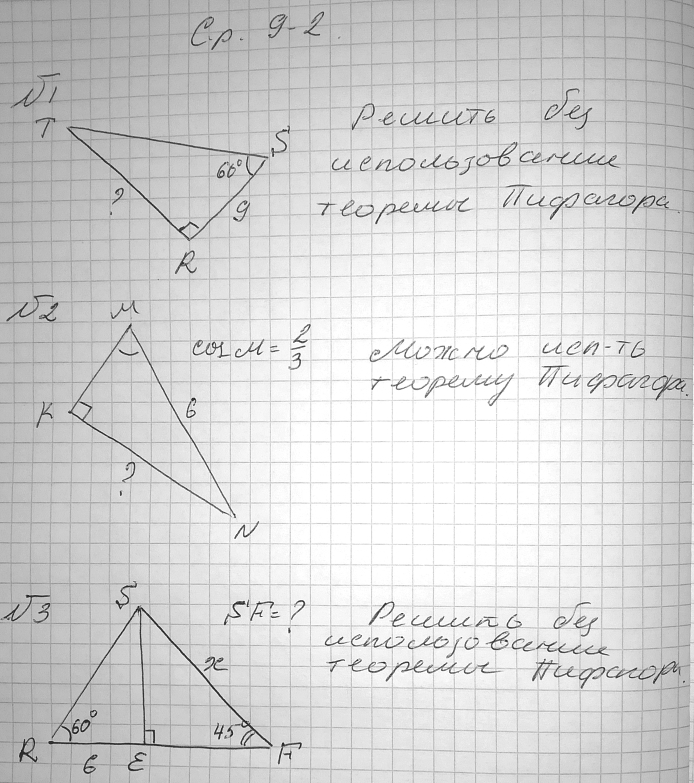 Ср. 9-2
№1
T
S
60°
?
9
R
Решить без
использования
теоремы Пифагора.
№2
M
cos M = 2/3
K
6
?
N
Можно исп-ть
теорему Пифагора.
№3
S
SF = ?
x
60°
45°
R
6
E
F
Решить без
использования
теоремы Пифагора.